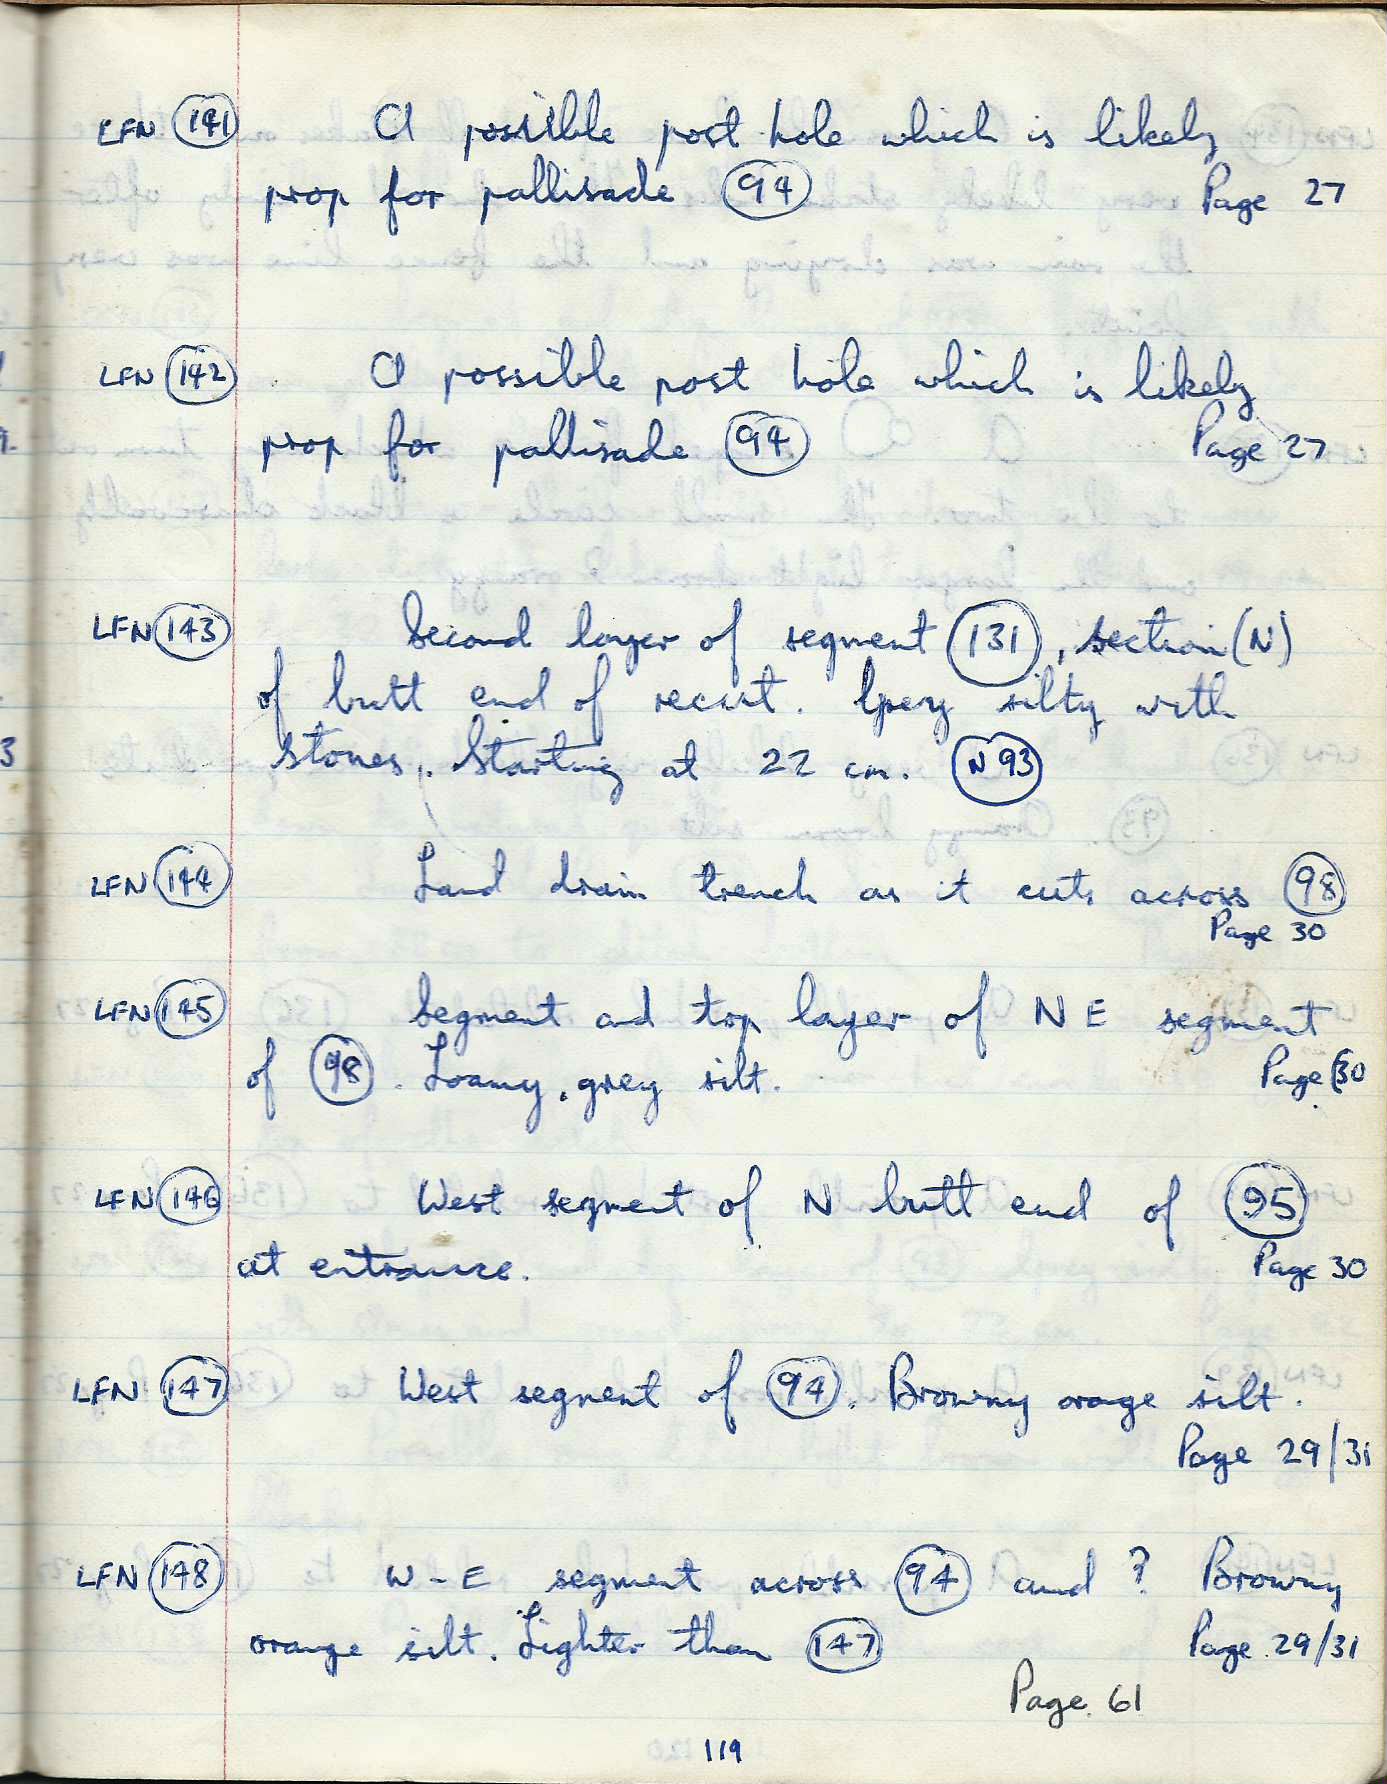 LFN 141 A possible post hole which is likely
prop for pallisade 94 Page 27
LFN 142 A possible post hole which is likely
prop for pallisade 94 Page 27
LFN 143 Second layer of segment 131, section (N)
of butt end of recut. Grey silty with
stones. Starting at 22 cm. N 93
LFN 144 Land drain trench as it cuts across 98
Page 30
LFN 145 Segment and top layer of N E segment
of 98. Loamy, grey silt. Page 30
LFN 146 West segment of N butt end of 95
at entrance. Page 30
LFN 147 West segment of 94. Browny orange silt.
Page 29/31
LFN 148 W-E segment across 94 and ? Browny
orange silt. Lighter than 147 Page 29/31
Page 61
119